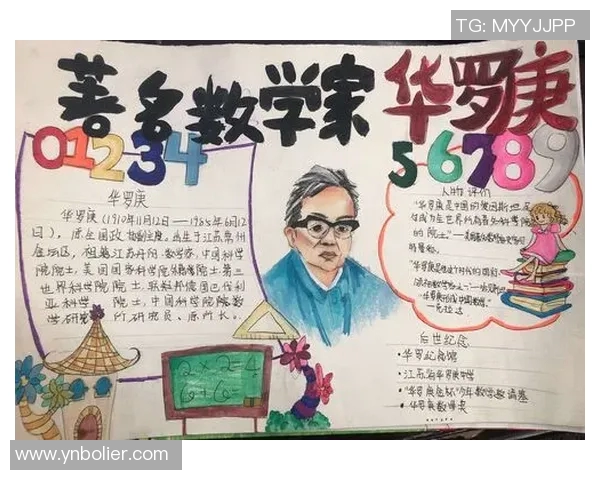 TG: MYYJJPP
著名数学家 华罗庚
01234
56789
华罗庚
华罗庚(1910年11月12日——1985年6月12
日),原全国政协副主席。出生于江苏常州
金坛区,祖籍江苏丹阳。数学家,中国科学
院院士,美国国家科学院外籍院士,第三
世界科学院院士,联邦德国巴伐利
亚科学院院士,中国科学院数
学研究所研究员、原所长。
人物评价
"华罗庚是中国的爱因斯坦,足
够成为全世界所有著名科学院
的院士。"
后世纪念
·华罗庚纪念馆
·江苏省华罗庚中学
·"华罗庚金杯"少年数学邀请赛
·华罗庚数学奖
2×2=4
6+6=
www.ynbolier.com